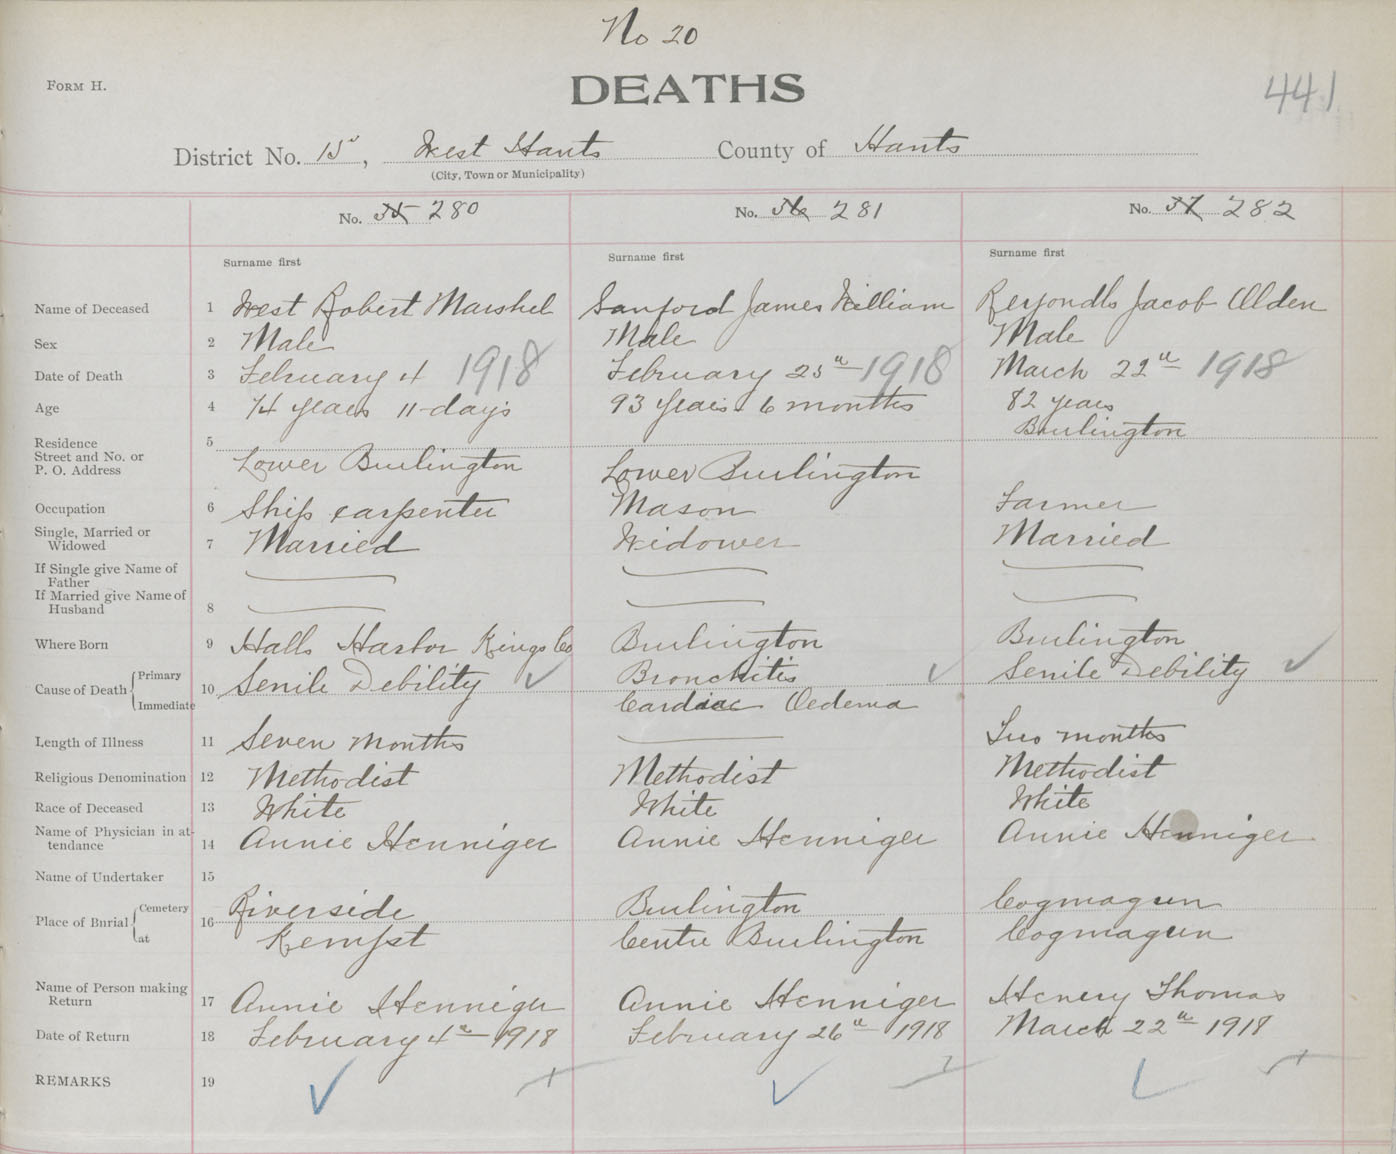 No 20
FORM H.
DEATHS
441
District No. 15, West Hants County of Hants
(City, Town or Municipality)
No. 35 280 No. 36 281 No. 37 282
Surname first Surname first Surname first
Name of Deceased 1 West Robert Marshel Sanford James William Reyondls Jacob Alden
Sex 2 Male Male Male
Date of Death 3 February 4 1918 February 25th 1918 March 22nd 1918
Age 4 74 years 11 days 93 years 6 months 82 years
Residence Street and No. or P. O. Address 5 Lower Burlington Lower Burlington Burlington
Occupation 6 Ship carpenter Mason Farmer
Single, Married or Widowed 7 Married Widower Married
If Single give Name of Father
If Married give Name of Husband 8
Where Born 9 Halls Harbor Kings Co Burlington Burlington
Cause of Death Primary 10 Senile Debility Bronchitis Senile Debility
Immediate Cardiac Oedema
Length of Illness 11 Seven months Two months
Religious Denomination 12 Methodist Methodist Methodist
Race of Deceased 13 White White White
Name of Physician in attendance 14 Annie Henniger Annie Henniger Annie Henniger
Name of Undertaker 15
Place of Burial Cemetery 16 Riverside Burlington Cogmagun
at Kempt Centre Burlington Cogmagun
Name of Person making Return 17 Annie Henniger Annie Henniger Henery Thomas
Date of Return 18 February 4th 1918 February 26th 1918 March 22nd 1918
REMARKS 19